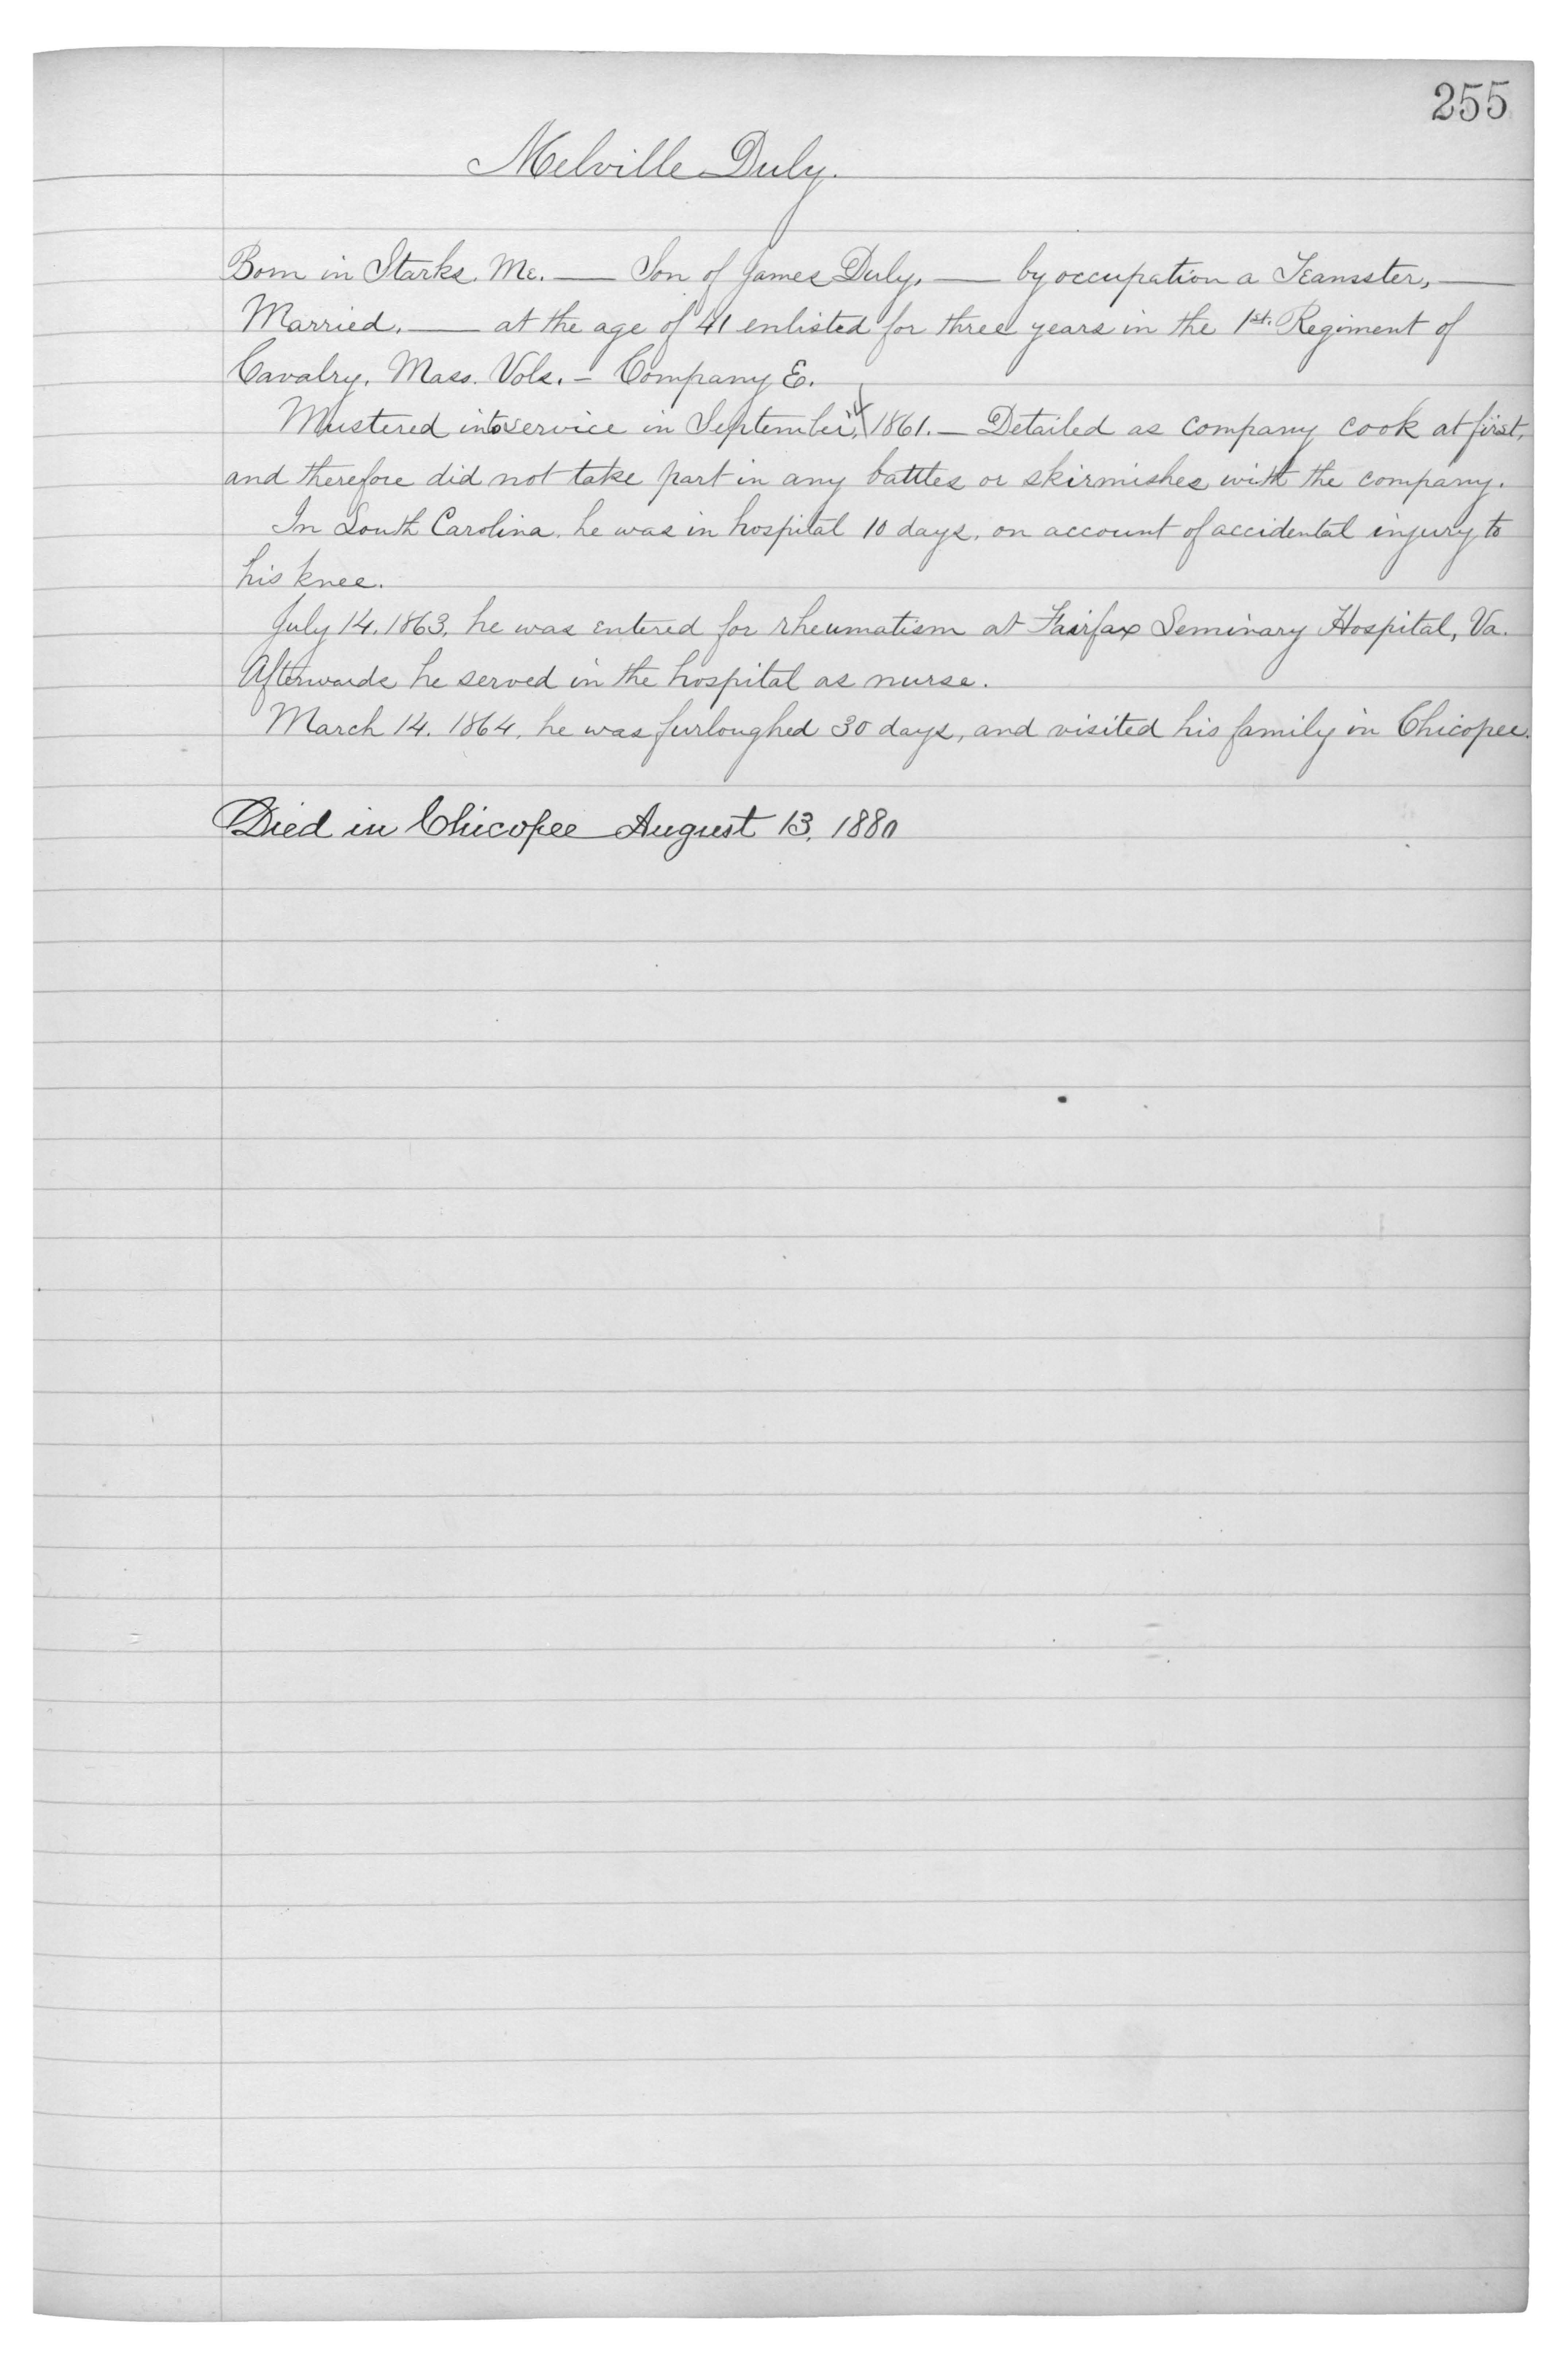 255
Melville Duly.
Born in Starks. Me. — Son of James Duly, — by occupation a Teamster, —
Married. — at the age of 41 enlisted for three years in the 1st. Regiment of
Cavalry, Mass. Vols. – Company E.
Mustered into service in September, 1861. – Detailed as company cook at first,
and therefore did not take part in any battles or skirmishes with the company.
In South Carolina. he was in hospital 10 days, on account of accidental injury to
his knee.
July 14. 1863, he was entered for rheumatism at Fairfax Seminary Hospital, Va.
Afterwards he served in the hospital as nurse.
March 14. 1864. he was furloughed 30 days, and visited his family in Chicopee.
Died in Chicopee August 13, 1880